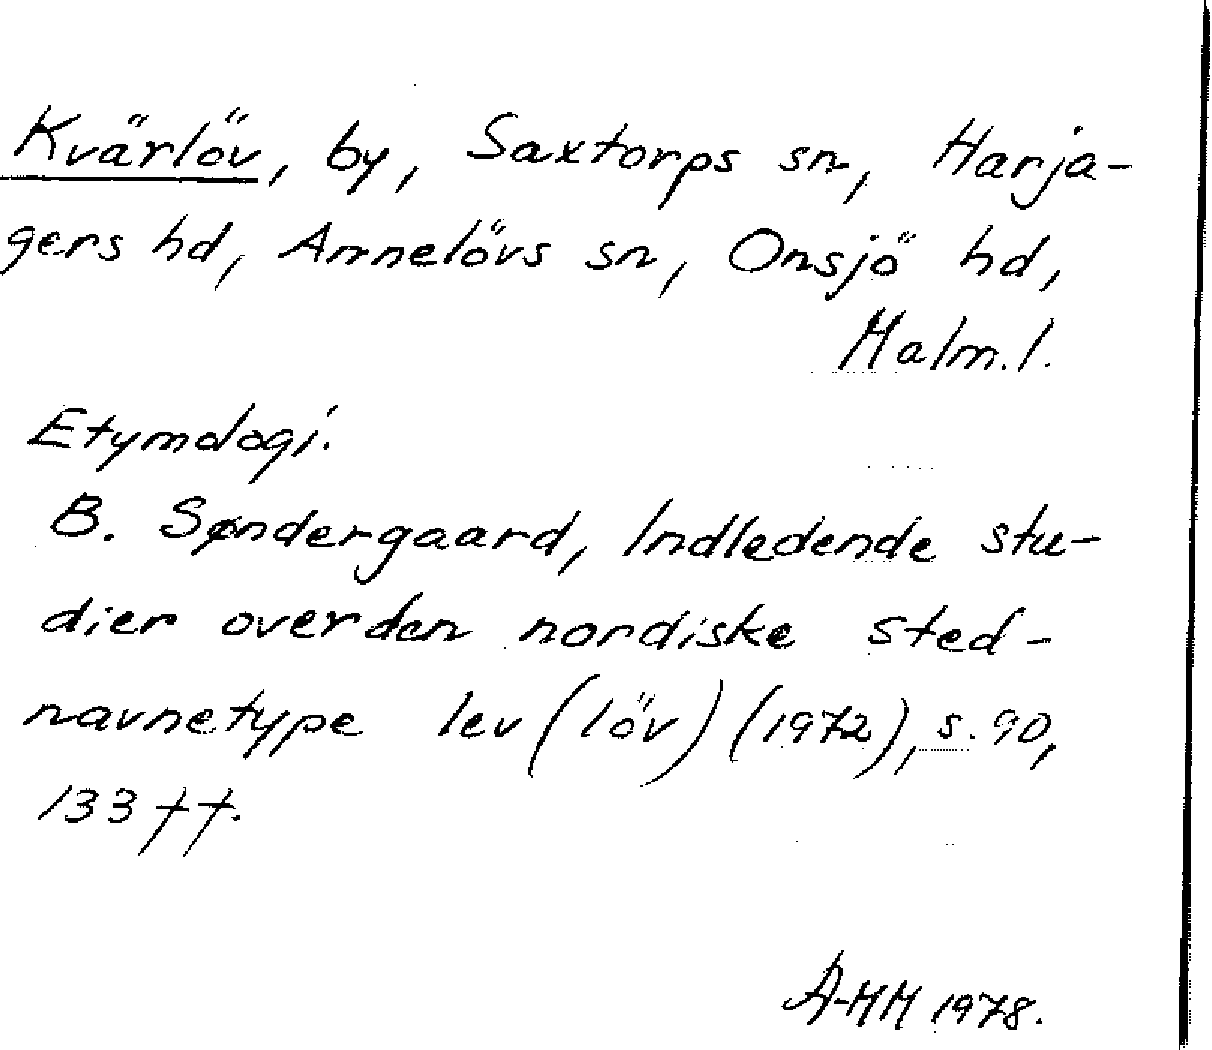 Kvärlöv, by, Saxtorps sn, Harja-
gers hd, Annelövs sn, Onsjö hd,
Malm.l.
Etymologi.
B. Søndergaard, Indledende stu-
dier over den nordiske sted-
navnetype lev (löv) (1972), s. 90,
133 ff.
A-MH 1978.